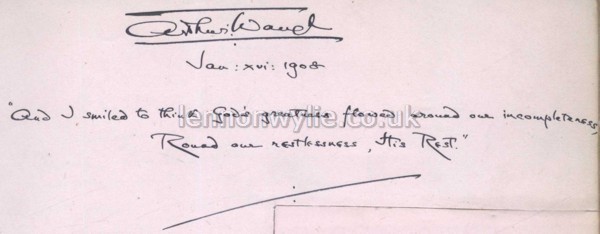 Arthur Waugh
Jan: xvi: 1908
"And I smiled to think God's greatness flowed around our incompleteness,
Round our restlessness, His Rest."
lennonwylie.co.uk